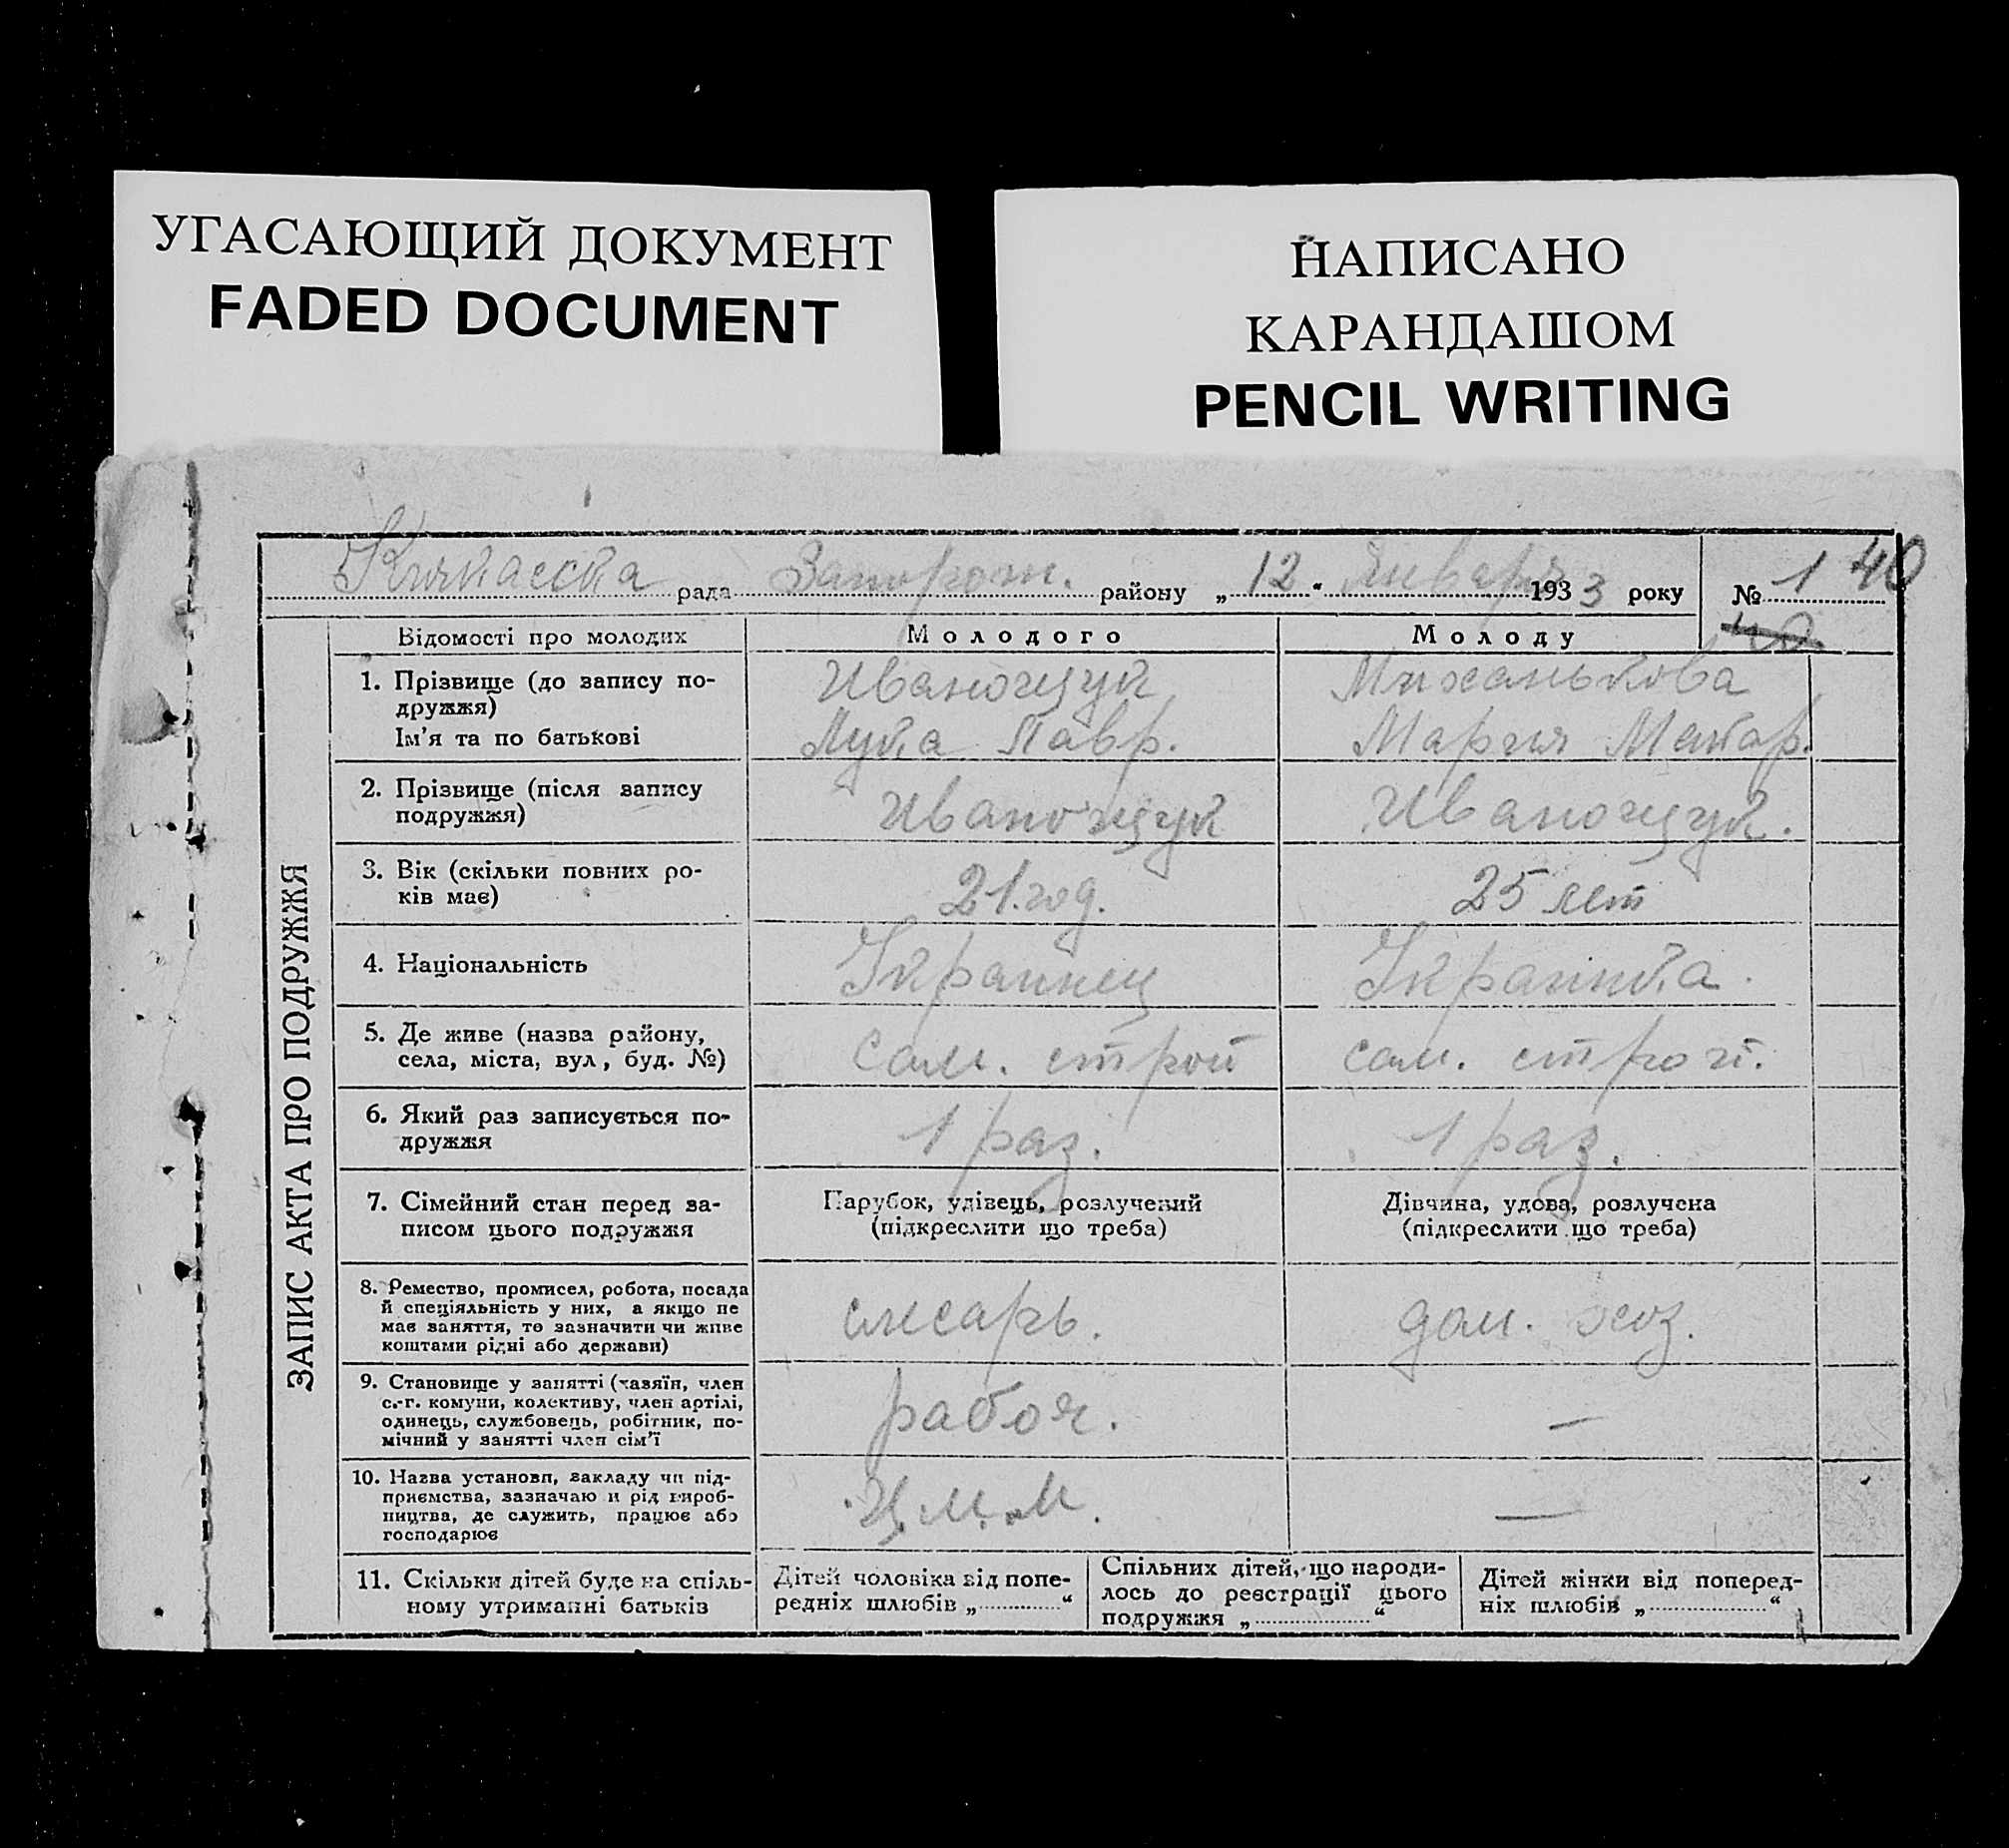 УГАСАЮЩИЙ ДОКУМЕНТ
FADED DOCUMENT
НАПИСАНО
КАРАНДАШОМ
PENCIL WRITING
Кичкасска рада Запорож. району „12“ Января 1933 року № 1 40
40
ЗАПИС АКТА ПРО ПОДРУЖЖЯ
Відомості про молодих Молодого Молоду
1. Прізвище (до запису по-
дружжя)
Ім'я та по батькові
Иваночщук
Лука Лавр.
Миханькова
Мария Макар.
2. Прізвище (після запису
подружжя)
Иваночщук
Иваночщук.
3. Вік (скільки повних ро-
ків має)
21 год.
25 лет
4. Національність
Украинец
Украинка.
5. Де живе (назва району,
села, міста, вул, буд. №)
сам. строй
сам. строй.
6. Який раз записується по-
дружжя
1 раз.
1 раз.
7. Сімейний стан перед за-
писом цього подружжя
Парубок, удівець, розлучений
(підкреслити що треба)
Дівчина, удова, розлучена
(підкреслити що треба)
8. Ремество, промисел, робота, посада
й спеціяльність у них, а якщо не
має заняття, то зазначити чи живе
коштами рідні або держави)
слесарь.
дом. хоз.
9. Становище у занятті (хазяїн, член
с.-г. комуни, колективу, член артілі,
одинець, службовець, робітник, по-
мічний у занятті член сім'ї
рабоч.
—
10. Назва установи, закладу чи під-
приємства, зазначаючи рід вироб-
ництва, де служить, працює або
господарює
Ц.М.М.
—
11. Скільки дітей буде на спіль-
ному утриманні батьків
Дітей чоловіка від попе-
редніх шлюбів „ “
Спільних дітей, що народи-
лось до реєстрації цього
подружжя „ “
Дітей жінки від поперед-
ніх шлюбів „ “